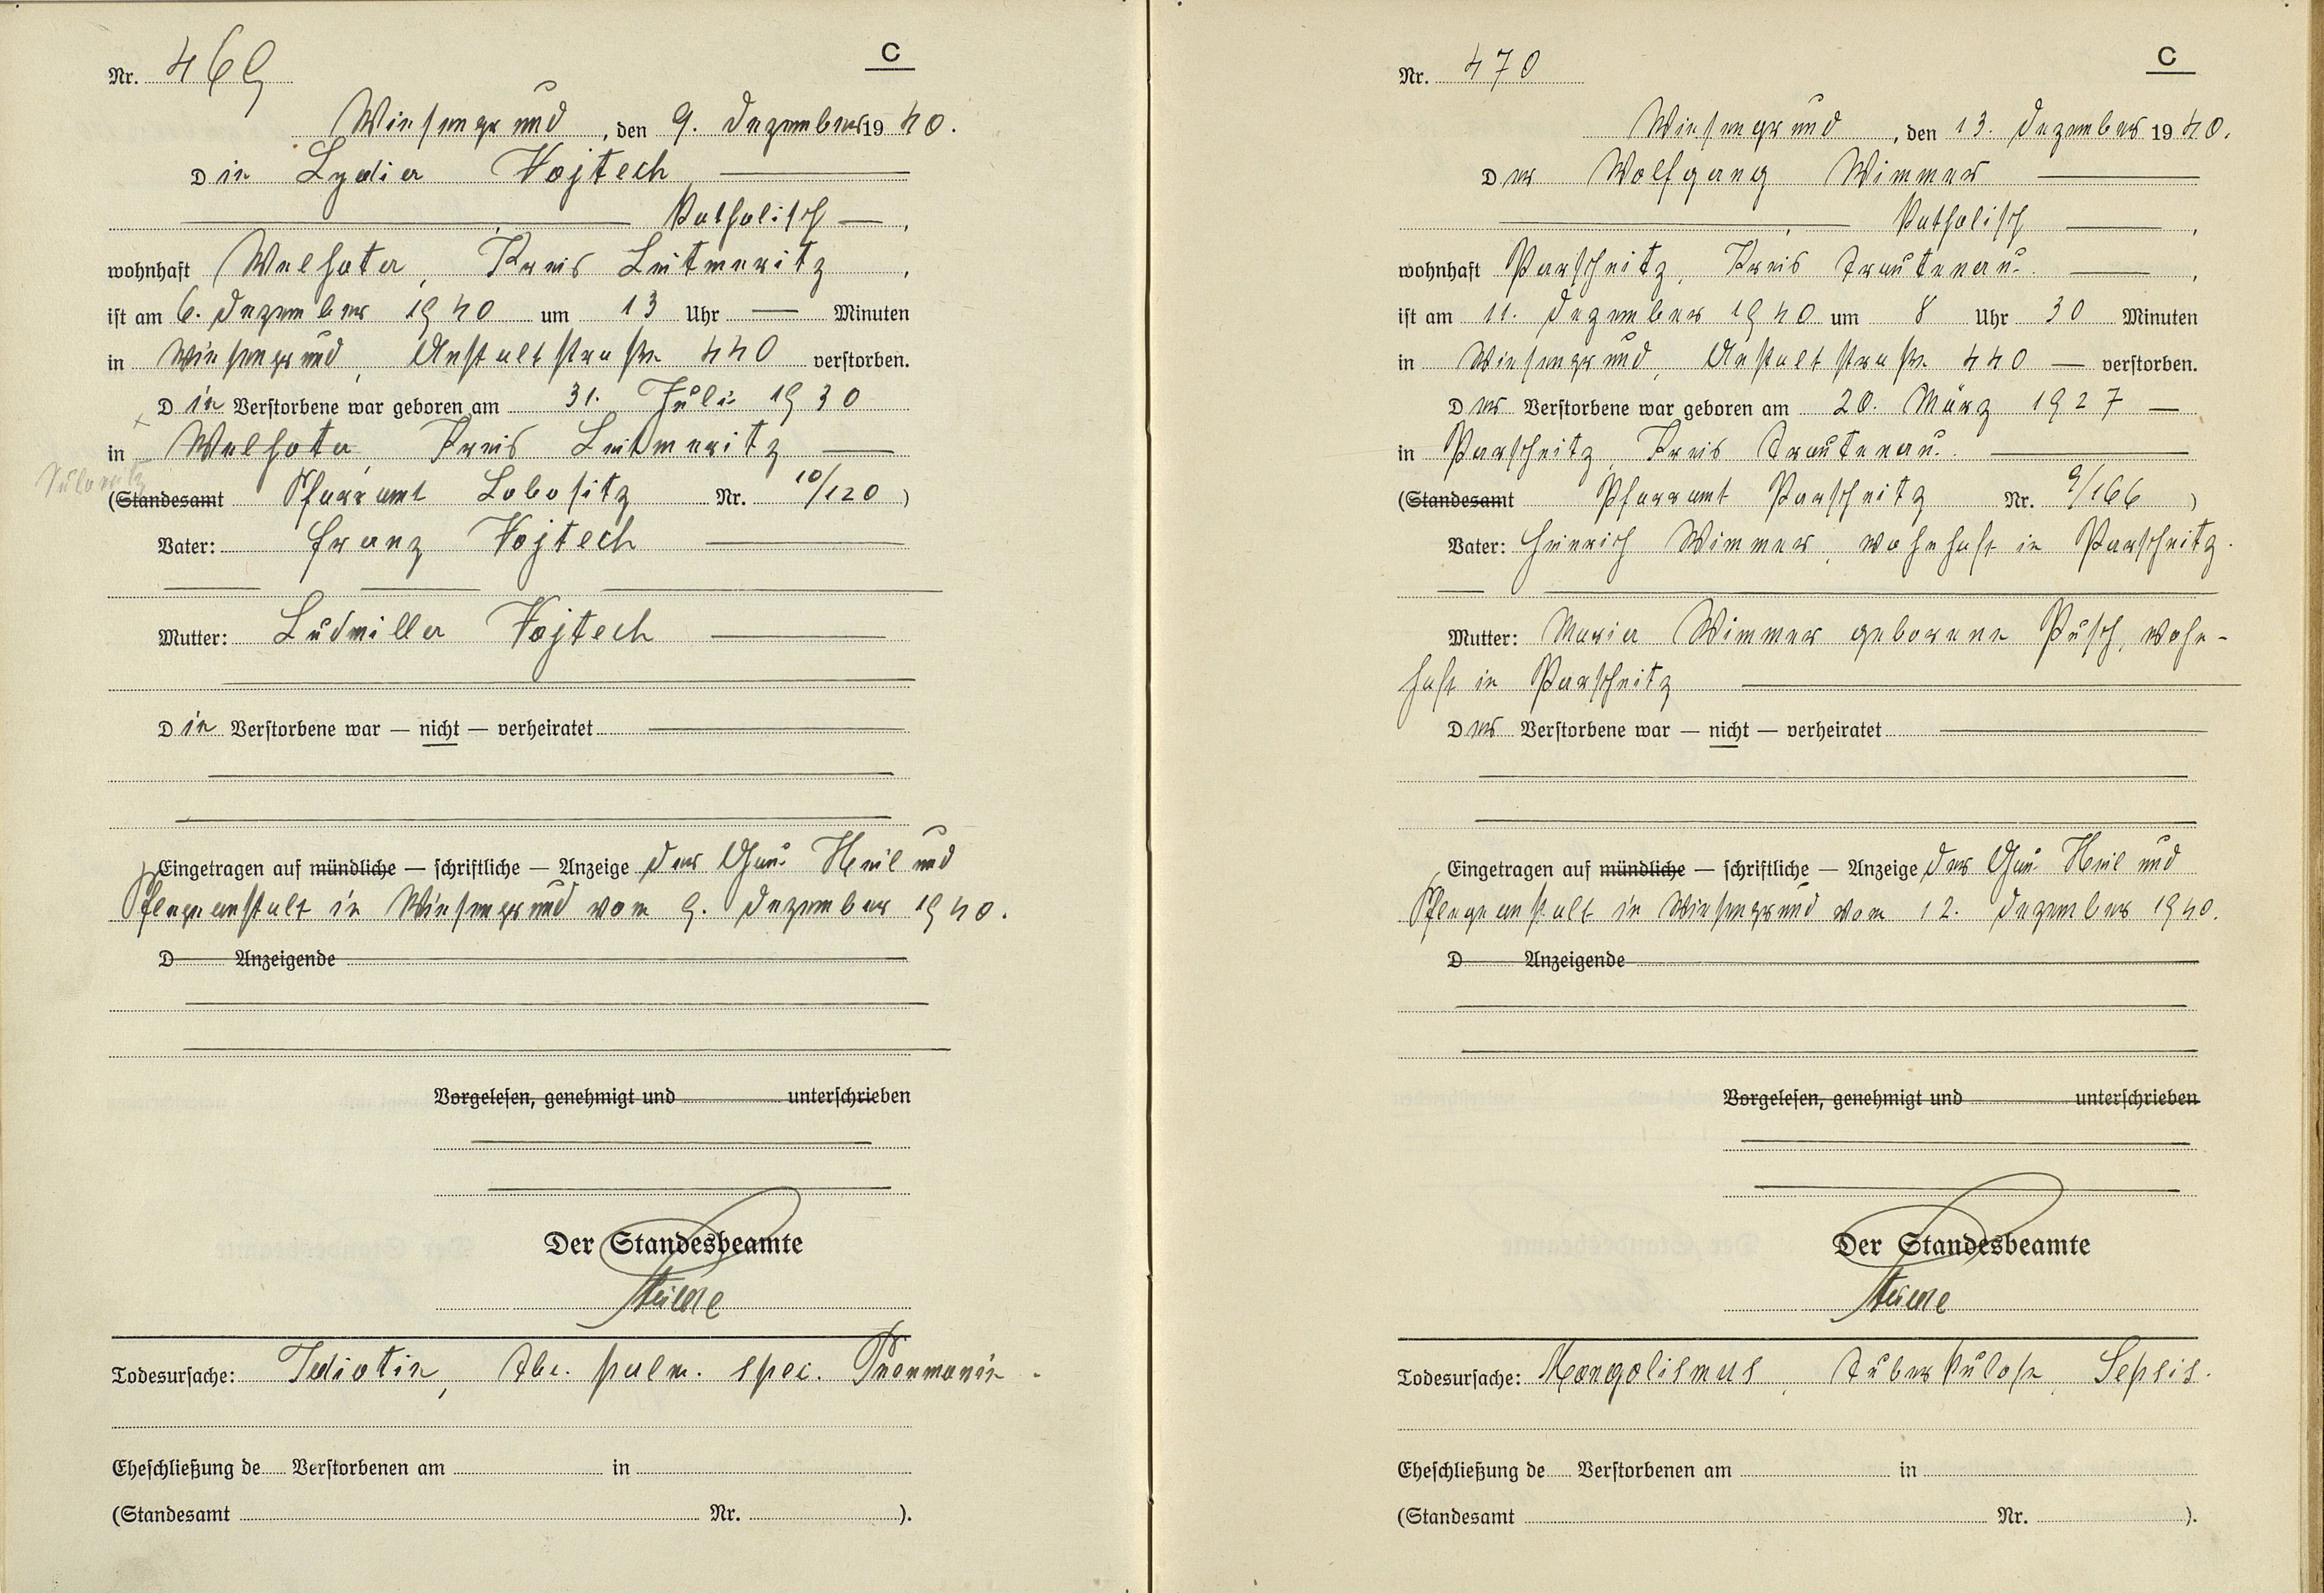 Nr. 469
C
Wiesengrund, den 9. Dezember 1940.
Die Lydia Vojtech
katholisch,
wohnhaft Welhota, Kreis Leitmeritz,
ist am 6. Dezember 1940 um 13 Uhr — Minuten
in Wiesengrund, Anstaltstraße 440 verstorben.
Die Verstorbene war geboren am 31. Juli 1930
in Welhota, Kreis Leitmeritz
(Standesamt Pfarramt Lobositz Nr. 10/120)
Vater: Franz Vojtech
Mutter: Ludmilla Vojtech
Die Verstorbene war — nicht — verheiratet
Eingetragen auf mündliche — schriftliche — Anzeige der Gau Heil und
Pflegeanstalt in Wiesengrund vom 9. Dezember 1940.
D Anzeigende
Vorgelesen, genehmigt und unterschrieben
Der Standesbeamte
Todesursache: Idiotie, Tbc. pulm. spec. Pneumonie.
Eheschließung de Verstorbenen am in
(Standesamt Nr. ).
Nr. 470
C
Wiesengrund, den 13. Dezember 1940.
Der Wolfgang Wimmer
, katholisch,
wohnhaft Parschnitz, Kreis Trautenau.,
ist am 11. Dezember 1940 um 8 Uhr 30 Minuten
in Wiesengrund, Anstaltstraße 440 — verstorben.
Der Verstorbene war geboren am 20. März 1927 —
in Parschnitz, Kreis Trautenau.
(Standesamt Pfarramt Parschnitz Nr. 9/166)
Vater: Heinrich Wimmer, wohnhaft in Parschnitz.
Mutter: Maria Wimmer geborene Pusch, wohn-
haft in Parschnitz
Der Verstorbene war — nicht — verheiratet
Eingetragen auf mündliche — schriftliche — Anzeige der Gau Heil und
Pflegeanstalt in Wiesengrund vom 12. Dezember 1940.
D Anzeigende
Vorgelesen, genehmigt und unterschrieben
Der Standesbeamte
Todesursache: Mongolismus, Tuberkulose, Sepsis.
Eheschließung de Verstorbenen am in
(Standesamt Nr. ).